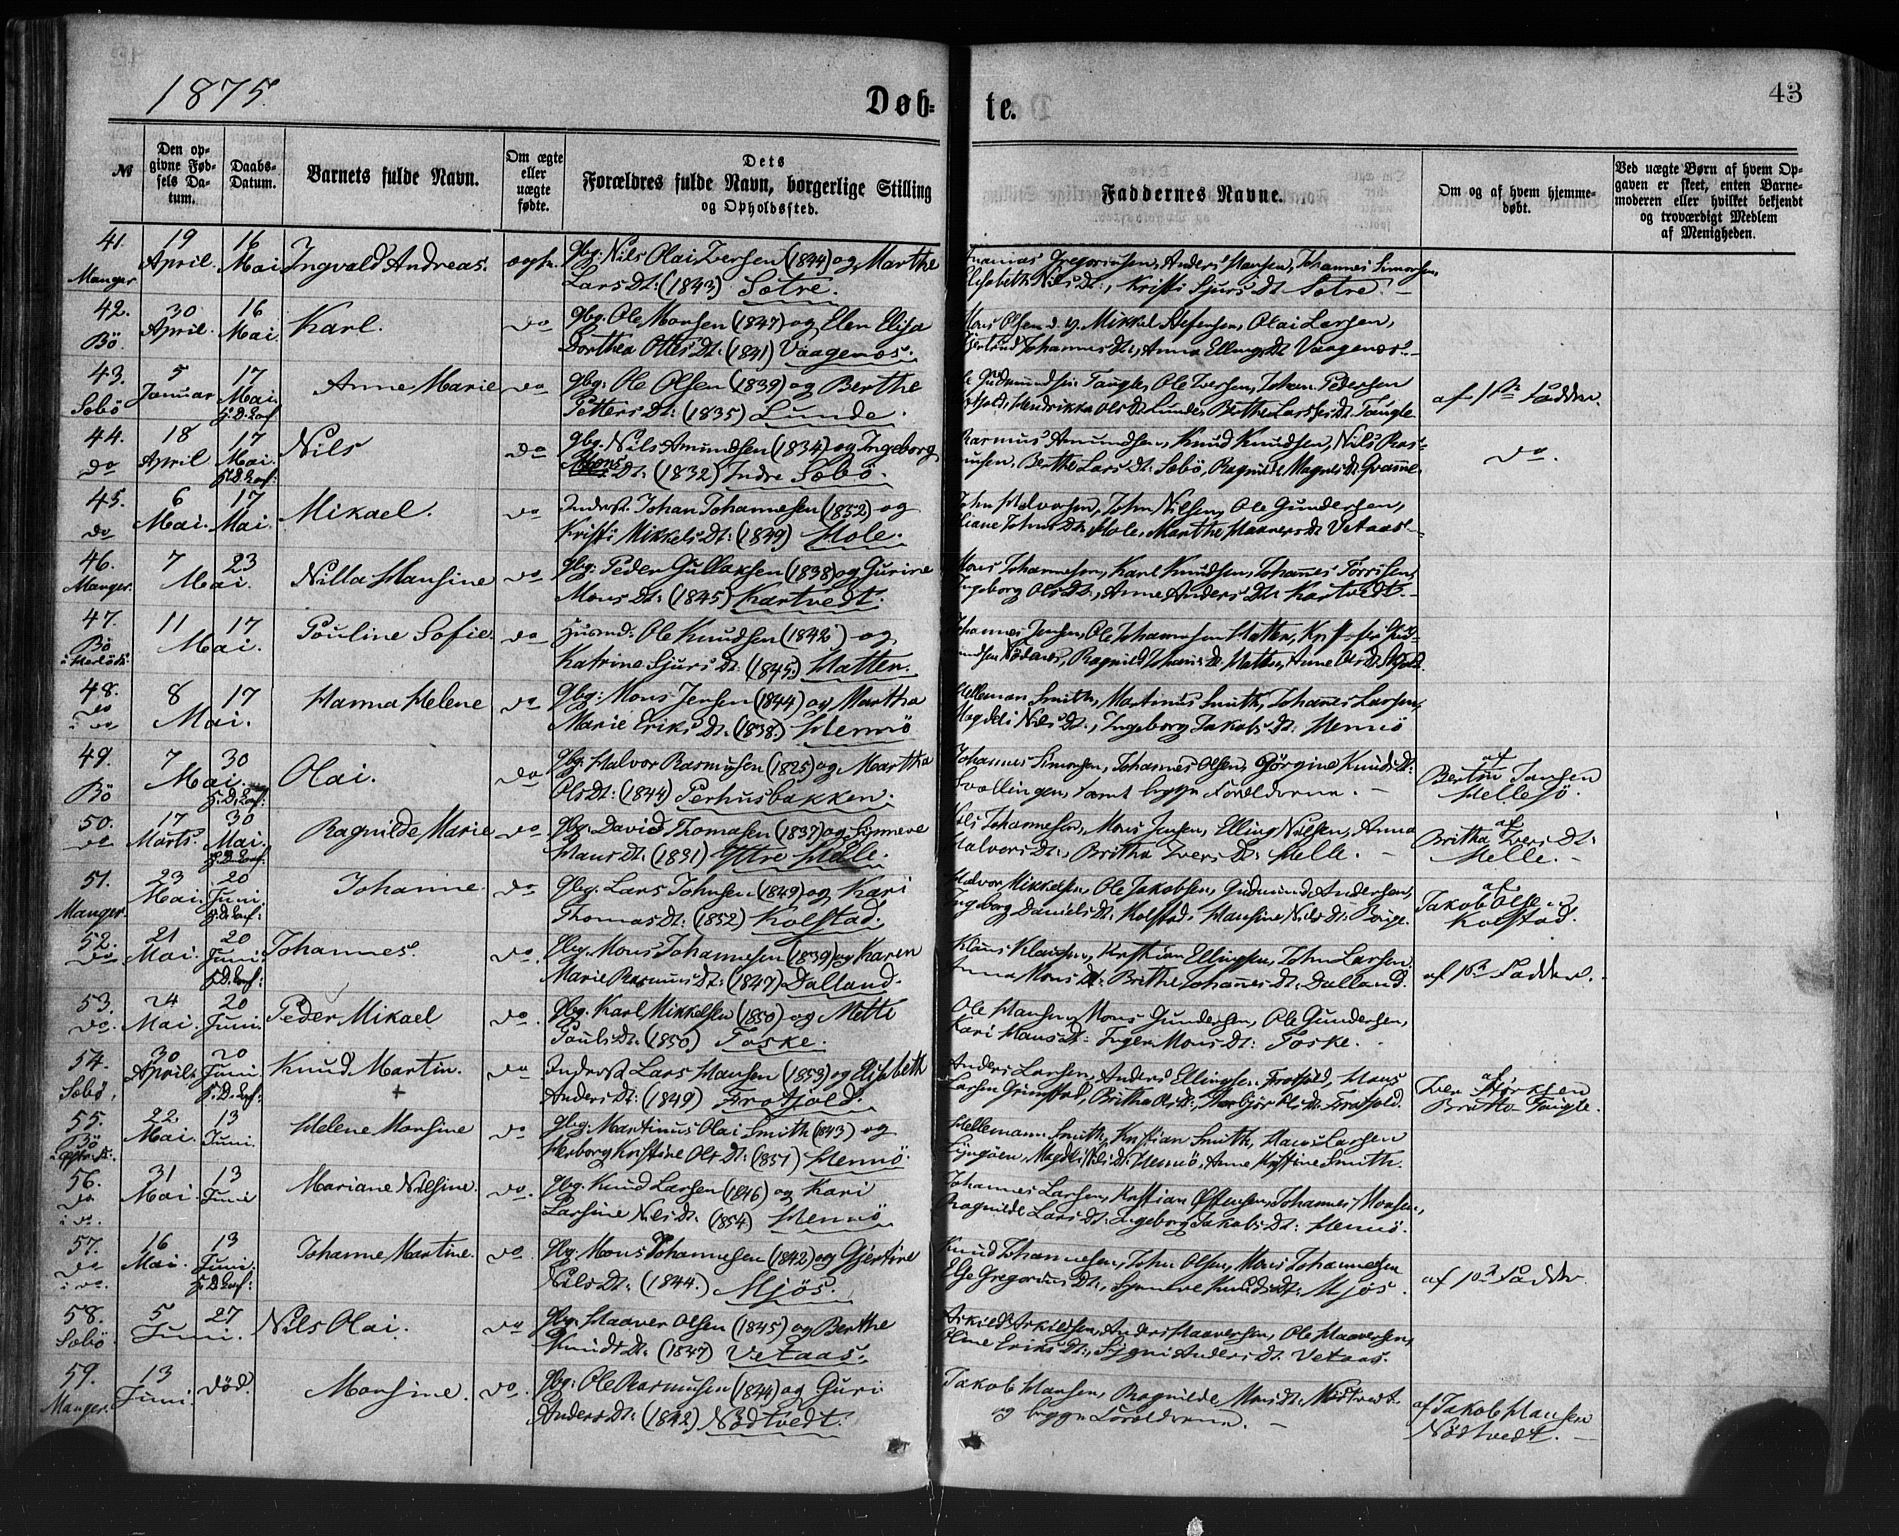 1875.
Døb-
te.
43
№
Den opgivne Fødsels Datum.
Daabs-Datum.
Barnets fulde Navn.
Om ægte eller uægte fødte.
Dets Forældres fulde Navn, borgerlige Stilling og Opholdssted.
Faddernes Navne.
Om og af hvem hjemmedøbt.
Ved uægte Børn af hvem Opgaven er skeet, enten Barnemoderen eller hvilket bekjendt og troværdigt Medlem af Menigheden.
41. Manger 19 April. 16 Mai Ingvald Andreas. ægte. Gbg: Nils Olai Iversen (1844) og Marthe
Lars Dt: (1843) Sætre.
Gregoriusen, Anders Hansen, Johannes Simonsen,
Elisabeth Nils Dt:, Kristi Sjurs Dt Sætre. -
42. Bö. 30 April. 16 Mai. Karl. do Gbg. Ole Monsen (1847) og Elen Elisa
Dorthea Ottes Dt: (1841) Vaagenæs.
Mons Olsen d. y. Mikkel Stefensen, Olai Larsen,
Johannes Dt:, Anna Ellings Dt Vaagenæs. -
43. Sæbö 5 Januar 17 Mai. Anne Marie do Gbg: Ole Olsen (1839) og Berthe
Petters Dt: (1835) Lunde.
Ole Iversen, Johan Pedersen
Hendrikka Ols Dt Lunde, Berthe Lasses Dt Taugle
af 1ste Fadder.
44. do 18 April 17 Mai. Nils do Gbg. Nils Amundsen (1834) og Ingeborg
Mons Dt: (1832) Indre Sæbö.
Rasmus Amundsen, Knud Knudsen, Nils Ras-
musen, Berthe Lars Dt: Sæbö, Ragnilde Magnes Dt. Qvamme.
do.
45. do 6 Mai. 17 Mai. Mikael. do Inderst. Johan Johannesen (1852) og
Kristi Mikkels Dt: (1849) Hole.
John Halvorsen, John Nilsen, Ole Gundersen,
Johns Dt: Hole, Marthe Haavers Dt Vetaas -
46. Manger. 7 23 Mai. Nilla Hansine do Gbg: Peder Gullaksen (1838) og Gurine
Mons Dt: (1845) Kartvedt.
Mons Johannesen, Karl Knudsen, Johannes
Ingeborg Ols Dt:, Anne Anders Dt Kartvedt -
47. Bö 11 17 Mai. Pouline Sofie do Husmd: Ole Knudsen (1842) og
Katrine Sjurs Dt: (1845) Hatten.
Johannes Jensen, Ole Johannesen Hatten,
48. do 8 17 Mai. Hanna Helene do Gbg: Mons Jensen (1844) og Martha
Marie Eriks Dt. (1838.) Hennö
Helleman Smith, Martinus Smith, Johannes Larsen,
Magdli Nils Dt:, Ingeborg Jakobs Dt: Hennö
49. Bö 7 30 Mai. Olai. do Gbg: Halvor Rasmusen (1825) og Martha
Ols Dt: (1844) Perhusbakken.
Johannes Simonsen, Johannes Olsen, Görgine Knuds Dt:
samt begge Forældrene. -
af Jansen Hellesö.
50. do 17 Marts. 30 Mai. Ragnilde Marie do Gbg. David Thomasen (1837) og Synneve
Hans Dt: (1831) Ytre Helle.
Nils Johannesen, Mons Jensen, Elling Nilsen, Anna
Halvors Dt:, Britha Ivers Dt: Helle. -
af Britha Ivers Dt: Helle. -
51. Manger. 23 Mai. 20 Juni. Johanne do Gbg: Lars Johnsen (1849) og Kari
Thomas Dt: (1852) Kolstad.
Halvor Mikkelsen, Ole Jakobsen, Gudmund Andersen,
Ingeborg Daniels Dt: Kolstad, Hansine Nils Dt:
af Jakob Olsen Kolstad.
52. do 21 Mai. 20 Juni. Johannes. do. Gbg. Mons Johannesen (1839) og Karen
Marie Rasmus Dt: (1847) Dalland.
Klaus Klausen, Kristian Ellingsen, John Larsen,
Anna Mons Dt: Brithe Johannes Dt: Dalland.
af 1ste Fadder.
53. do. 24 Mai. 20 Juni. Peder Mikael do. Gbg. Karl Mikkelsen (1850) og Mette
Pouls Dt: (1850) Toske.
Ole Hansen, Mons Gundersen, Ole Gundersen,
Kari Hans Dt: Inger Mons Dt: Toske.
54. Sæbö. 30 April. 20 Juni Knud Martin. + do Inderst Lars Hansen (1853) og Elisabeth
Anders Dt: (1849) Frotjold.
Anders Larsen, Anders Ellingsen Frotjold, Hans
Larsen Grimstad, Britha Ols Dt:, Ols Dt: Frotjold.
af
55. Bö 22 Mai. 13 Juni Helene Monsine do Gbg. Martinus Olai Smith (1843) og
Herborg Kristine Ols Dt: (1851) Hennö.
Hellemann Smith, Kristian Smith, Hans Larsen
Magdli Nils Dt: Hennö, Anne Kristine Smith.
56. do i do. 31 Mai 13 Juni Mariane Nilsine. do. Gbg. Knud Larsen (1846) og Kari
Larsine Nils Dt: (1854) Hennö
Johannes Larsen, Kristian Johannes Monsen,
Ragnilde Lars Dt: Ingeborg Jakobs Dt: Hennö.
57. do i do. 16 Mai. 13 Juni. Johanne Martine. do. Gbg. Mons Johannesen (1842) og Gjertine
Nils Dt: (1844.) Mjös.
Knud Johannesen, John Olsen, Mons Johannesen
Else Gregorius Dt:, Synneve Knuds Dt: Mjös.
af 1ste Fadder
58. Sæbö. 5 27 Juni. Nils Olai. do Gbg. Haaver Olsen (1845) og Berthe
Knuds Dt: (1847) Vetaas.
Askildsen, Anders Haaversen, Ole Haaversen,
Eriks Dt:, Anders Dt. Vetaas.
59. Manger. 13 Juni. död. Monsine. do. Gbg: Ole Rasmusen (1844) og Guri
Anders Dt: (1842) Nödtvedt.
Jakob Hansen, Ragnilde Mons Dt: Nödtvedt
og begge Forældrene. -
af Jakob Hansen Nödtvedt. -